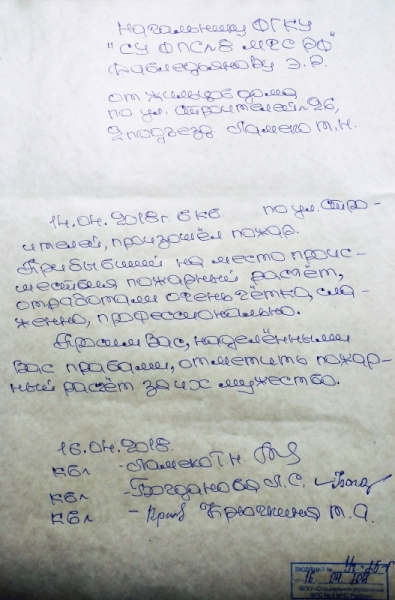 Начальнику ФГКУ
"СУ ФПС №8 МЧС РФ"
Давледьянову Э.Р.
от жильцов дома
по ул. Строителей № 26,
2 подъезд Ламеко Т.Н.
14.04.2018г. в кв. по ул. Стро-
ителей, произошёл пожар.
Прибывший на место проис-
шествия пожарный расчёт,
отработали очень чётко, сла-
женно, профессионально.
Просим Вас, наделёнными
Вас правами, отметить пожар-
ный расчёт за их мужество.
16.04.2018.
кв - Ламеко Т.Н
кв - Богданова Л.С.
кв - Крючкина Т.А.
ВХОДЯЩИЙ №
16. 04 2018